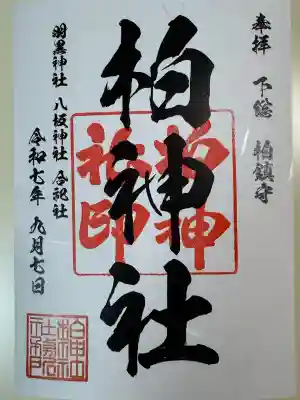 奉拝 下総 柏鎮守
柏神社
羽黒神社 八坂神社 合祀社
令和七年 九月七日